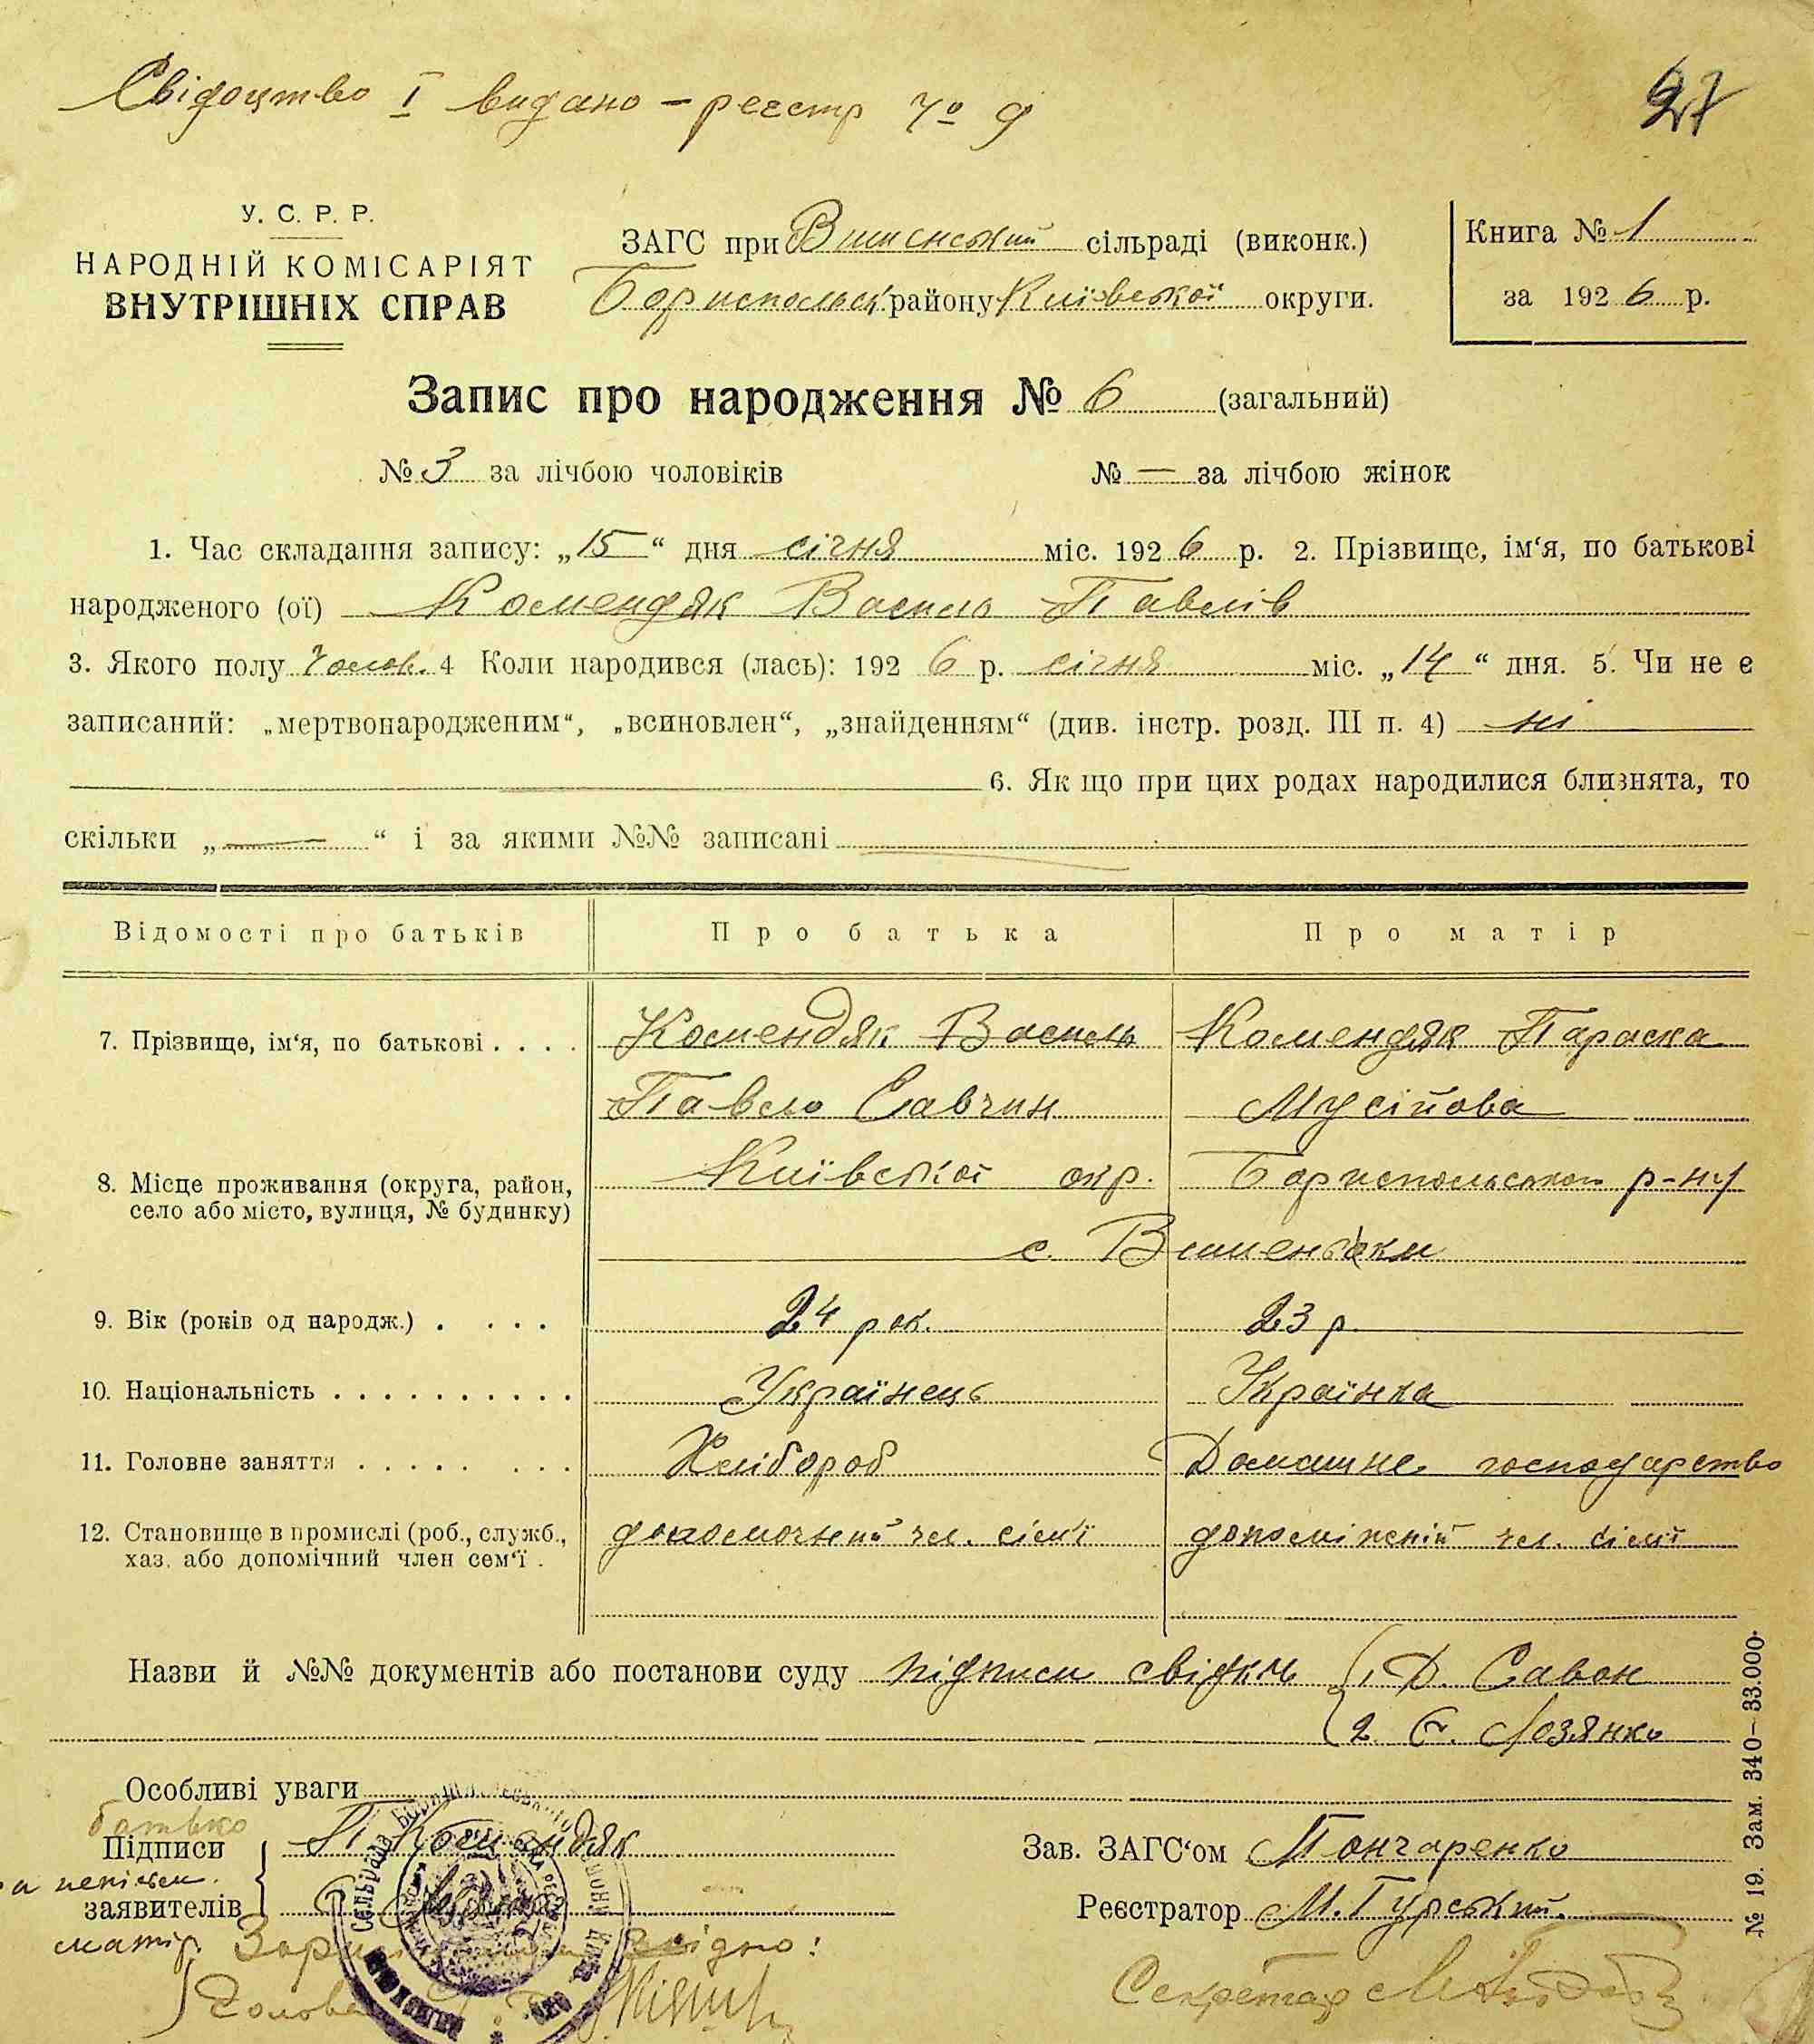 Свідоцтво І видано – реєстр
27
У. С. Р. Р.
НАРОДНІЙ КОМІСАРІЯТ
ВНУТРІШНІХ СПРАВ
ЗАГС при Вишенський сільраді (виконк.)
Бориспольськ району Київської округи.
Книга № 1
за 1926 р.
Запис про народження № 6 (загальний)
№ 3 за лічбою чоловіків № — за лічбою жінок
1. Час складання запису: „15“ дня січня міс. 1926 р. 2. Прізвище, ім‘я, по батькові
народженого (ої) Комендяк Василь Павлів
3. Якого полу чолов. 4 Коли народився (лась): 1926 р. січня міс. „14“ дня. 5. Чи не є
записаний: „мертвонародженим“, „всиновлен“, „знайденням“ (див. інстр. розд. III п. 4) ні
6. Як що при цих родах народилися близнята, то
скільки „—“ і за якими №№ записані
Відомості про батьків Про батька Про матір
7. Прізвище, ім‘я, по батькові . . . . Комендяк Василь Комендяк Параска
Павло Савчин Мусійова
8. Місце проживання (округа, район, село або місто, вулиця, № будинку) Київської окр. Бориспольського р-ну
с. Вишеньки
9. Вік (років од народж.) . . . . 24 рок. 23 р.
10. Національність . . . . . . . . . . Українець Українка
11. Головне заняття . . . . . . . . Хлібороб Домашнє господарство
12. Становище в промислі (роб., служб., хаз. або допомічний член сем‘ї . допомочний чл. сім'ї допоміжній чл. сімї
Назви й №№ документів або постанови суду підписи свідків 1. Д. Савон
2. Є. Лозянко
Особливі уваги
батько
Підписи П Комендяк
заявителів
матір
Зав. ЗАГС‘ом Гончаренко
Реєстратор М. Гурський.
згідно:
Голова
Секретар
№ 19. Зам. 340—33.000.